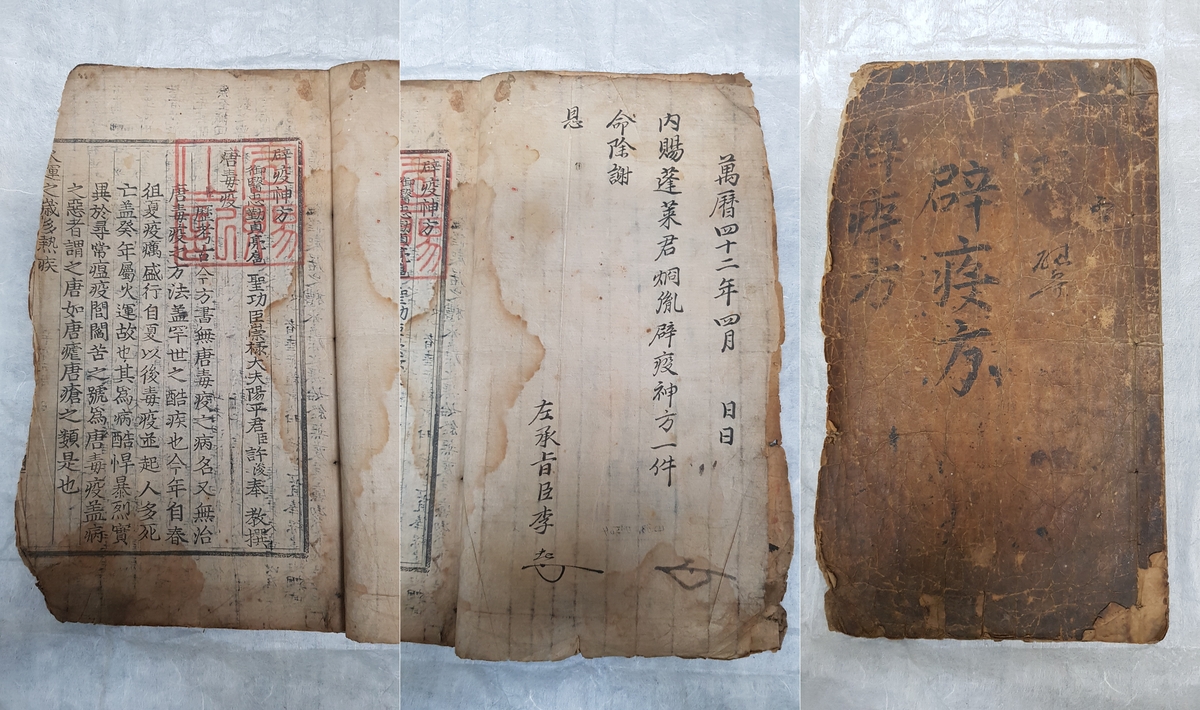 辟疫神方
御醫忠勤貞亮扈 聖功臣崇祿大夫陽平君臣許浚奉 教撰
唐毒疫
歷考古今方書無唐毒疫之病名又無治
唐毒疫之方法盖罕世之酷疾也今年自春
徂夏疫癘盛行自夏以後毒疫並起人多死
亡盖癸年屬火運故也其為病酷悍暴烈實
異於尋常瘟疫閭閻苦之號為唐毒疫盖病
之惡者謂之唐如唐瘧唐瘡之類是也
運之歲多熱疾
辟疫神方
萬曆四十二年四月 日日
內賜蓬萊君炯胤辟疫神方一件
命除謝
恩
左承旨臣李
辟疫方
辟疫方